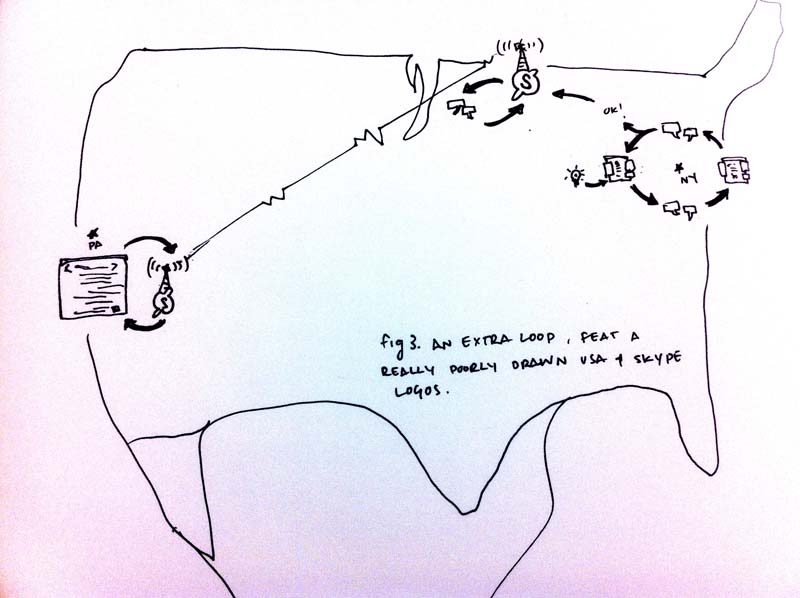 S
OK!
NY
PA
S
fig 3. AN EXTRA LOOP, FEAT A
REALLY POORLY DRAWN USA + SKYPE
LOGOS.